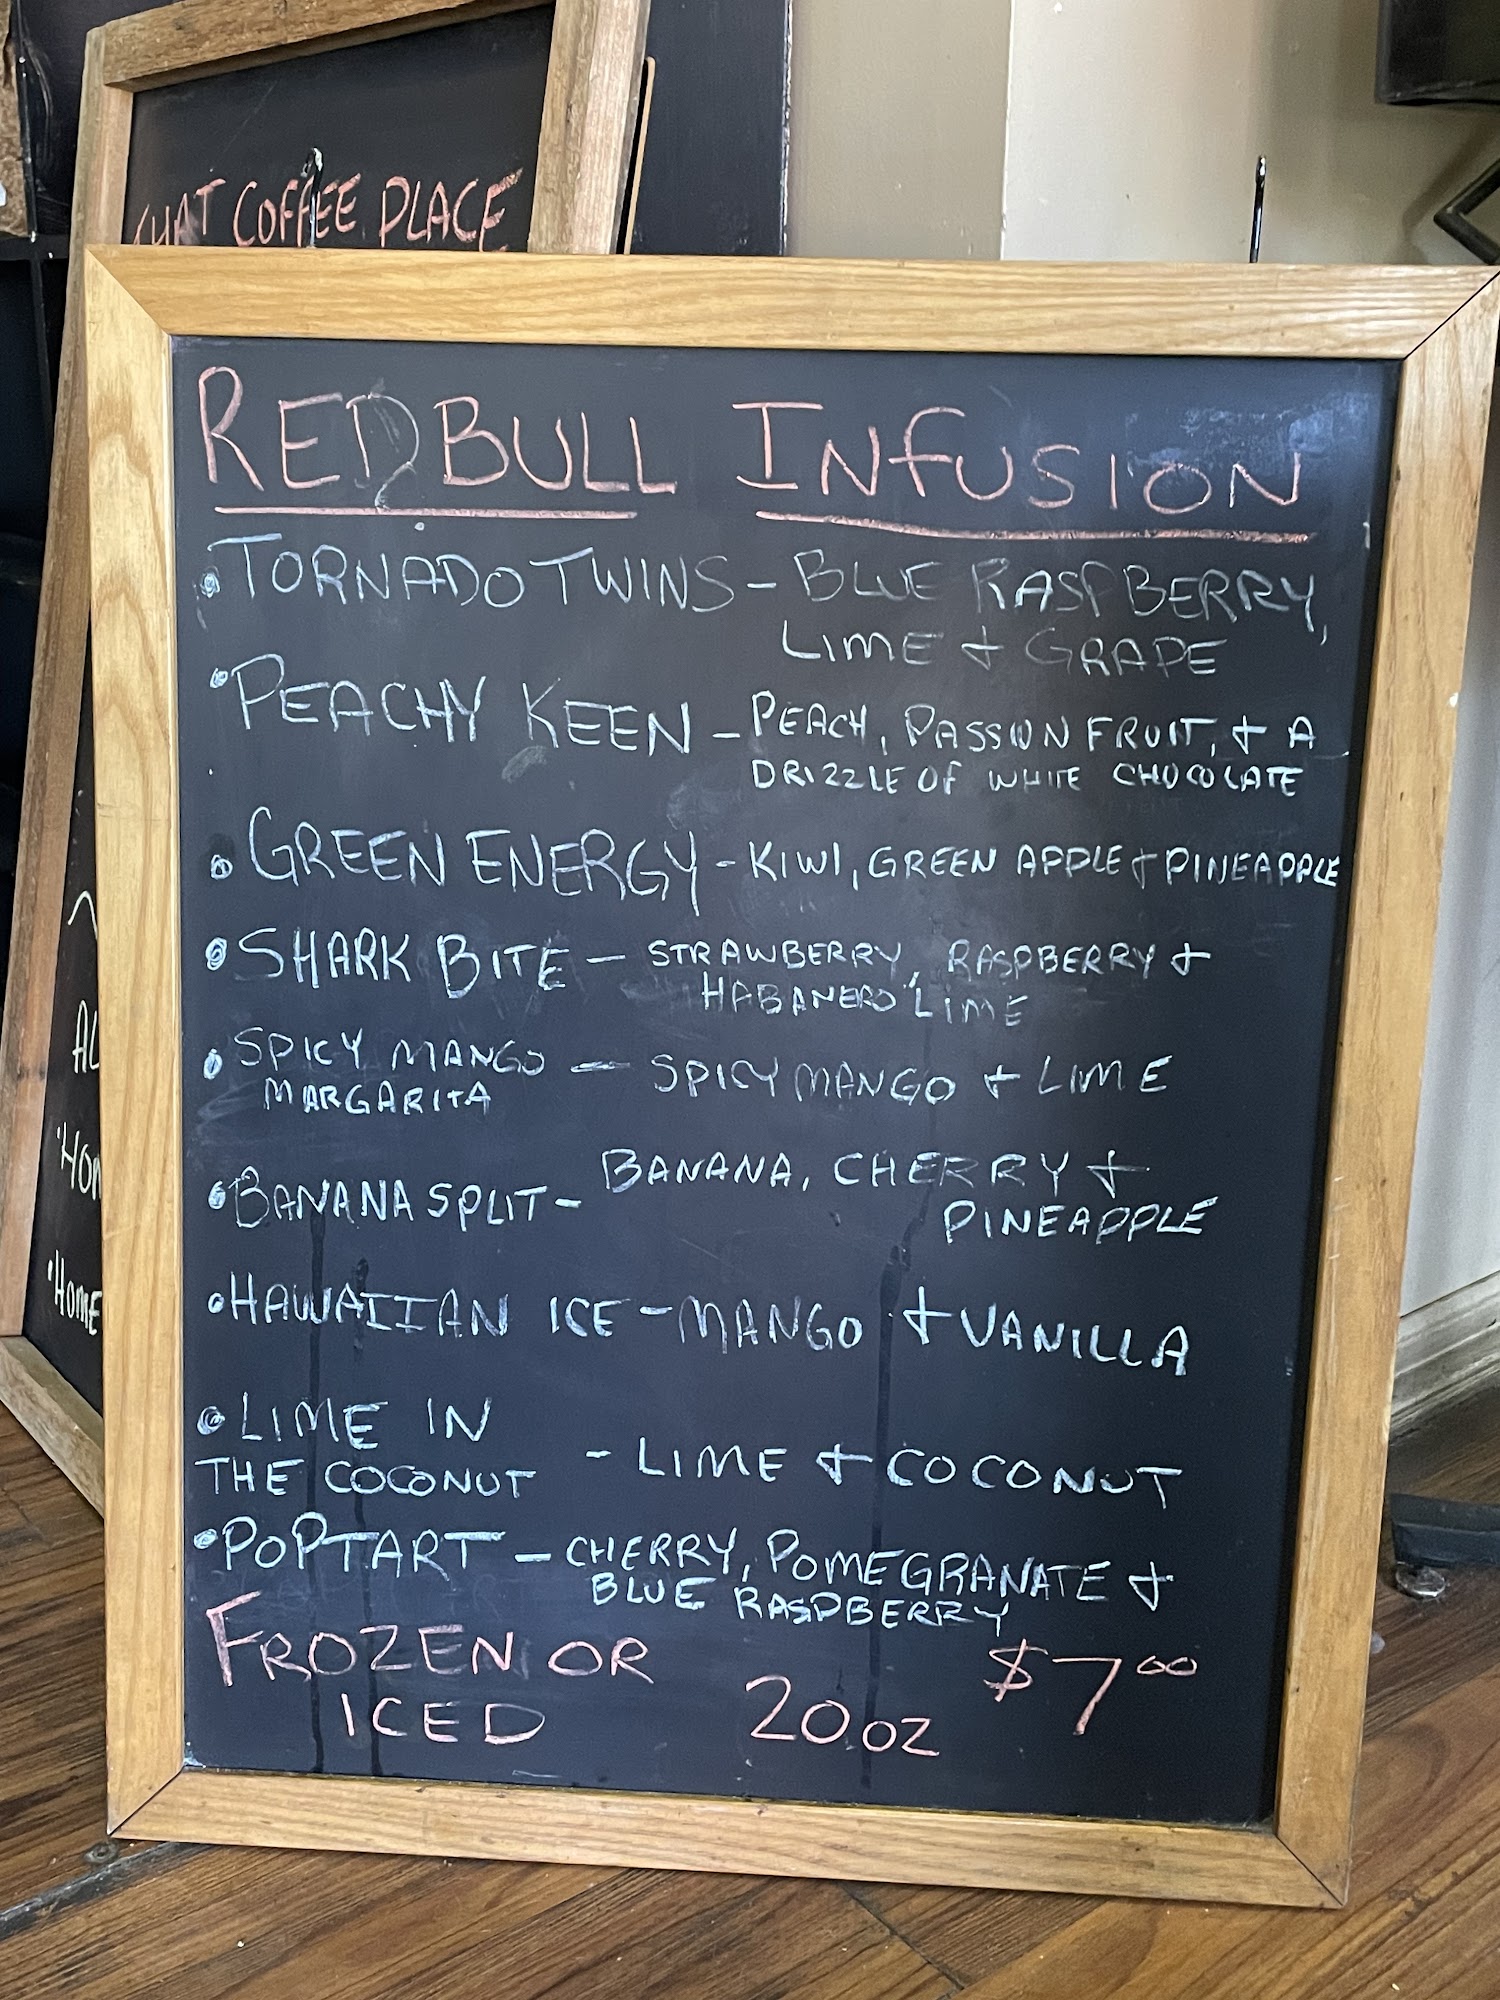 THAT COFFEE PLACE
REDBULL INFUSION
• TORNADO TWINS - BLUE RASPBERRY,
LIME & GRAPE
• PEACHY KEEN - PEACH, PASSION FRUIT, & A
DRIZZLE OF WHITE CHOCOLATE
• GREEN ENERGY - KIWI, GREEN APPLE & PINEAPPLE
• SHARK BITE - STRAWBERRY, RASPBERRY &
HABANERO LIME
• SPICY MANGO - SPICY MANGO & LIME
MARGARITA
• BANANA SPLIT - BANANA, CHERRY &
PINEAPPLE
• HAWAIIAN ICE - MANGO & VANILLA
• LIME IN
THE COCONUT - LIME & COCONUT
• POPTART - CHERRY, POMEGRANATE &
BLUE RASPBERRY
FROZEN OR
ICED 20 OZ $7.00
AL
• HOM
• HOME